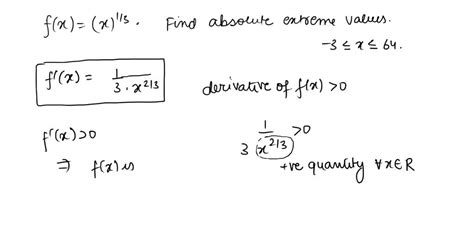 f(x) = (x)^{1/3}. Find absolute extreme values.
-3 ≤ x ≤ 64.
f'(x) = 1/(3·x^{2/3})
derivative of f(x) > 0
f'(x) > 0
1/(3 x^{2/3}) > 0
⇒ f(x) is
+ve quantity ∀ x ∈ R